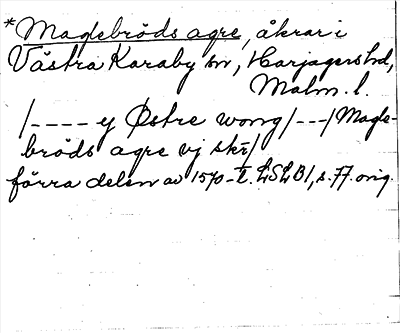 *Maglebröds agre, åkrar i
Västra Karaby sn, Harjagers hd,
Malm. l.
/---- y Østre wong/---/Magle-
bröds agre vj skr/
förra delen av 1570-t. LSLB1, s. 77. orig.